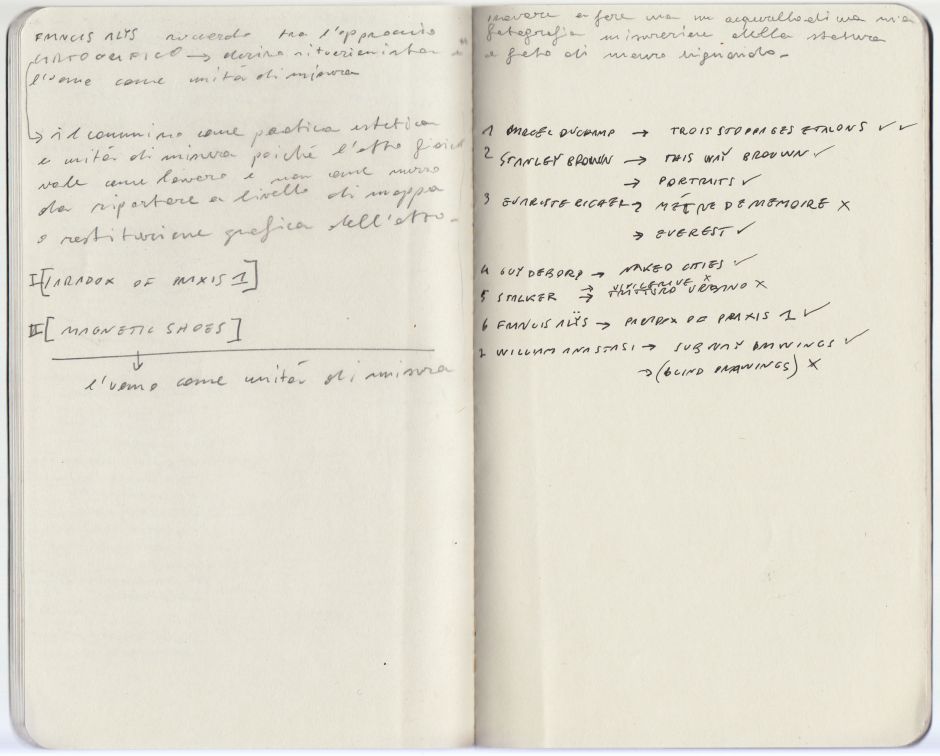 FRANCIS ALYS raccordo tra l'approccio
CARTOGRAFICO → deriva situazionista e
l'uomo come unità di misura
→ il cammino come pratica estetica
e unità di misura poiché l'atto fisico
vale come lavoro e non come mezzo
da riportare a livello di mappa
o restituzione grafica dell'atto.
I [PARADOX OF PRAXIS 1]
II [MAGNETIC SHOES]
l'uomo come unità di misura
provare a fare un acquarello di una mia
fotografia misurazione della statura
e foto di mauro vignando.
1 MARCEL DUCHAMP → TROIS STOPPAGES ETALONS ✓ ✓
2 STANLEY BROWN → THIS WAY BROUWN ✓
→ PORTRAITS ✓
3 EVARISTE RICHER → MÈTRE DE MEMOIRE X
→ EVEREST ✓
4 GUY DEBORD → NAKED CITIES ✓
5 STALKER → X
→ URBANO X
6 FRANCIS ALŸS → PARADOX OF PRAXIS 1 ✓
7 WILLIAM ANASTASI → SUBWAY DRAWINGS ✓
→ (BLIND DRAWINGS) X